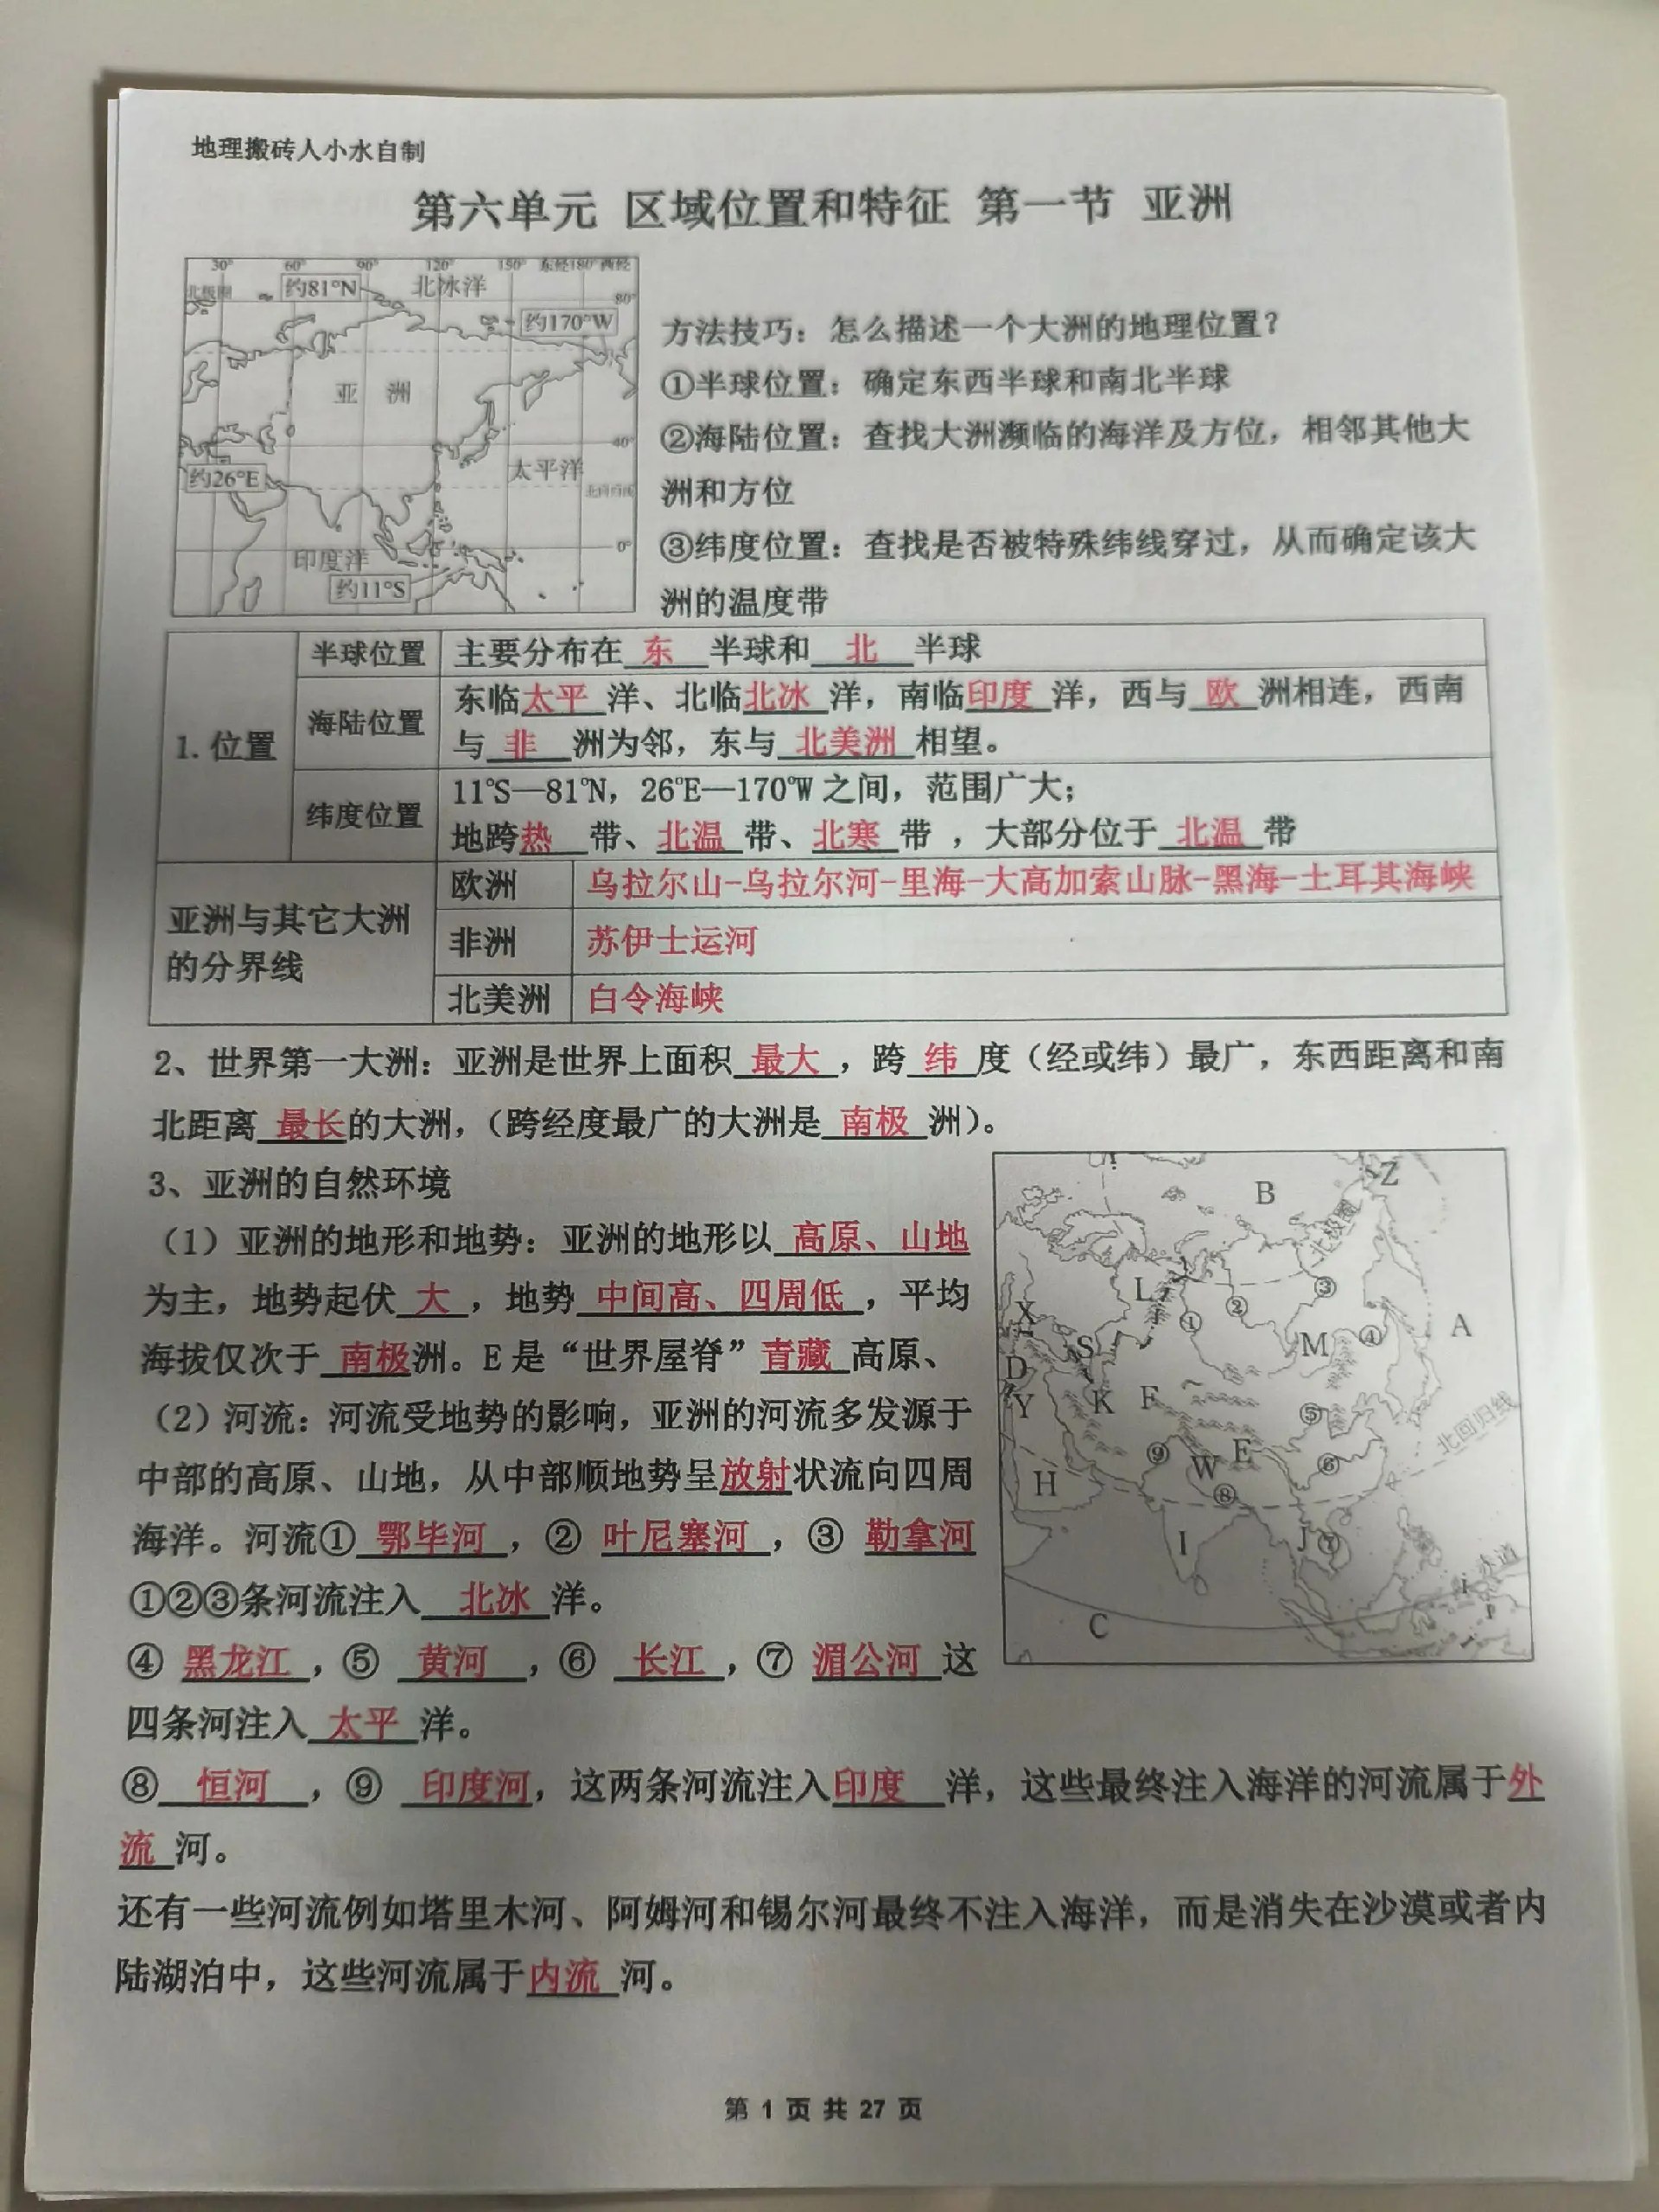 地理搬砖人小水自制
第六单元 区域位置和特征 第一节 亚洲
30° 60° 90° 120° 150° 东经180°西经
约81°N 北冰洋
80°
约170°W
亚 洲
40°
太平洋
约26°E
0°
印度洋
约11°S
方法技巧：怎么描述一个大洲的地理位置？
①半球位置：确定东西半球和南北半球
②海陆位置：查找大洲濒临的海洋及方位，相邻其他大
洲和方位
③纬度位置：查找是否被特殊纬线穿过，从而确定该大
洲的温度带
1.位置
半球位置 主要分布在 东 半球和 北 半球
海陆位置 东临太平 洋、北临北冰 洋，南临印度 洋，西与 欧 洲相连，西南
与 非 洲为邻，东与 北美洲 相望。
纬度位置 11°S—81°N，26°E—170°W之间，范围广大；
地跨热 带、北温 带、北寒 带 ，大部分位于 北温 带
亚洲与其它大洲
的分界线
欧洲 乌拉尔山-乌拉尔河-里海-大高加索山脉-黑海-土耳其海峡
非洲 苏伊士运河
北美洲 白令海峡
2、世界第一大洲：亚洲是世界上面积 最大 ，跨 纬 度（经或纬）最广，东西距离和南
北距离 最长的大洲，（跨经度最广的大洲是 南极 洲）。
3、亚洲的自然环境
（1）亚洲的地形和地势：亚洲的地形以 高原、山地
为主，地势起伏 大 ，地势 中间高、四周低 ，平均
海拔仅次于 南极洲。E是“世界屋脊”青藏 高原、
（2）河流：河流受地势的影响，亚洲的河流多发源于
中部的高原、山地，从中部顺地势呈放射状流向四周
海洋。河流① 鄂毕河 ，② 叶尼塞河 ，③ 勒拿河
①②③条河流注入 北冰 洋。
④ 黑龙江 ，⑤ 黄河 ，⑥ 长江 ，⑦ 湄公河 这
四条河注入 太平 洋。
Z
B
北极圈
L
③
②
①
X
A
S
M
④
D
Y
K
F
⑤
北回归线
⑨
W
E
⑥
H
⑧
I
J
⑦
赤道
C
⑧ 恒河 ，⑨ 印度河，这两条河流注入印度 洋，这些最终注入海洋的河流属于外
流 河。
还有一些河流例如塔里木河、阿姆河和锡尔河最终不注入海洋，而是消失在沙漠或者内
陆湖泊中，这些河流属于内流 河。
第 1 页 共 27 页